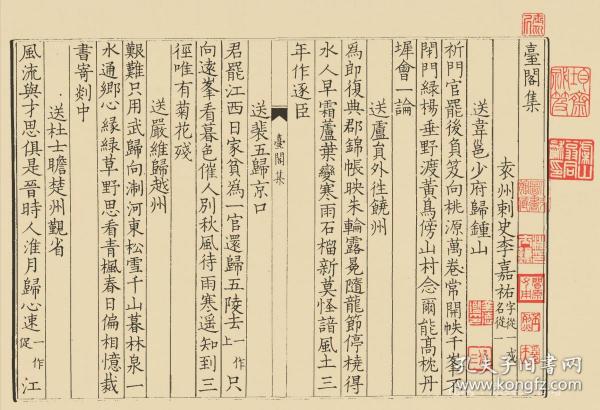 臺閣集
袁州刺史李嘉祐字從一
送韋邕少府歸鍾山
祈門官罷後負笈向桃源萬卷常開帙千峯不
閉門綠楊垂野渡黃鳥傍山村念爾能髙枕丹
墀會一論
送盧員外往饒州
爲郎復典郡錦帳映朱輪露冕隨龍節停橈得
水人早霜蘆葉變寒雨石榴新莫怪諳風土三
年作逐臣
臺閣集
送裴五歸京口
君罷江西日家貧爲一官還歸五陵去一作上只
向遠峯看暮色催人別秋風待雨寒遥知到三
徑唯有菊花殘
送嚴維歸越州
艱難只用武歸向淛河東松雪千山暮林泉一
水通鄉心緣綠草野思看青楓春日偏相憶裁
書寄剡中
送杜士瞻楚州覲省
風流與才思俱是晉時人淮月歸心速一作促江
孔夫子旧书网
www.kongfz.com